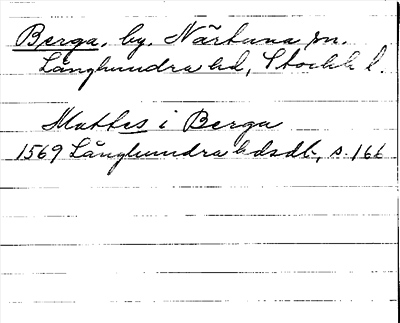 Berga, by, Närtuna sn.
Långhundra hd, Stockh. l.
Mattes i Berga
1569 Långhundra hdsdb, s. 166